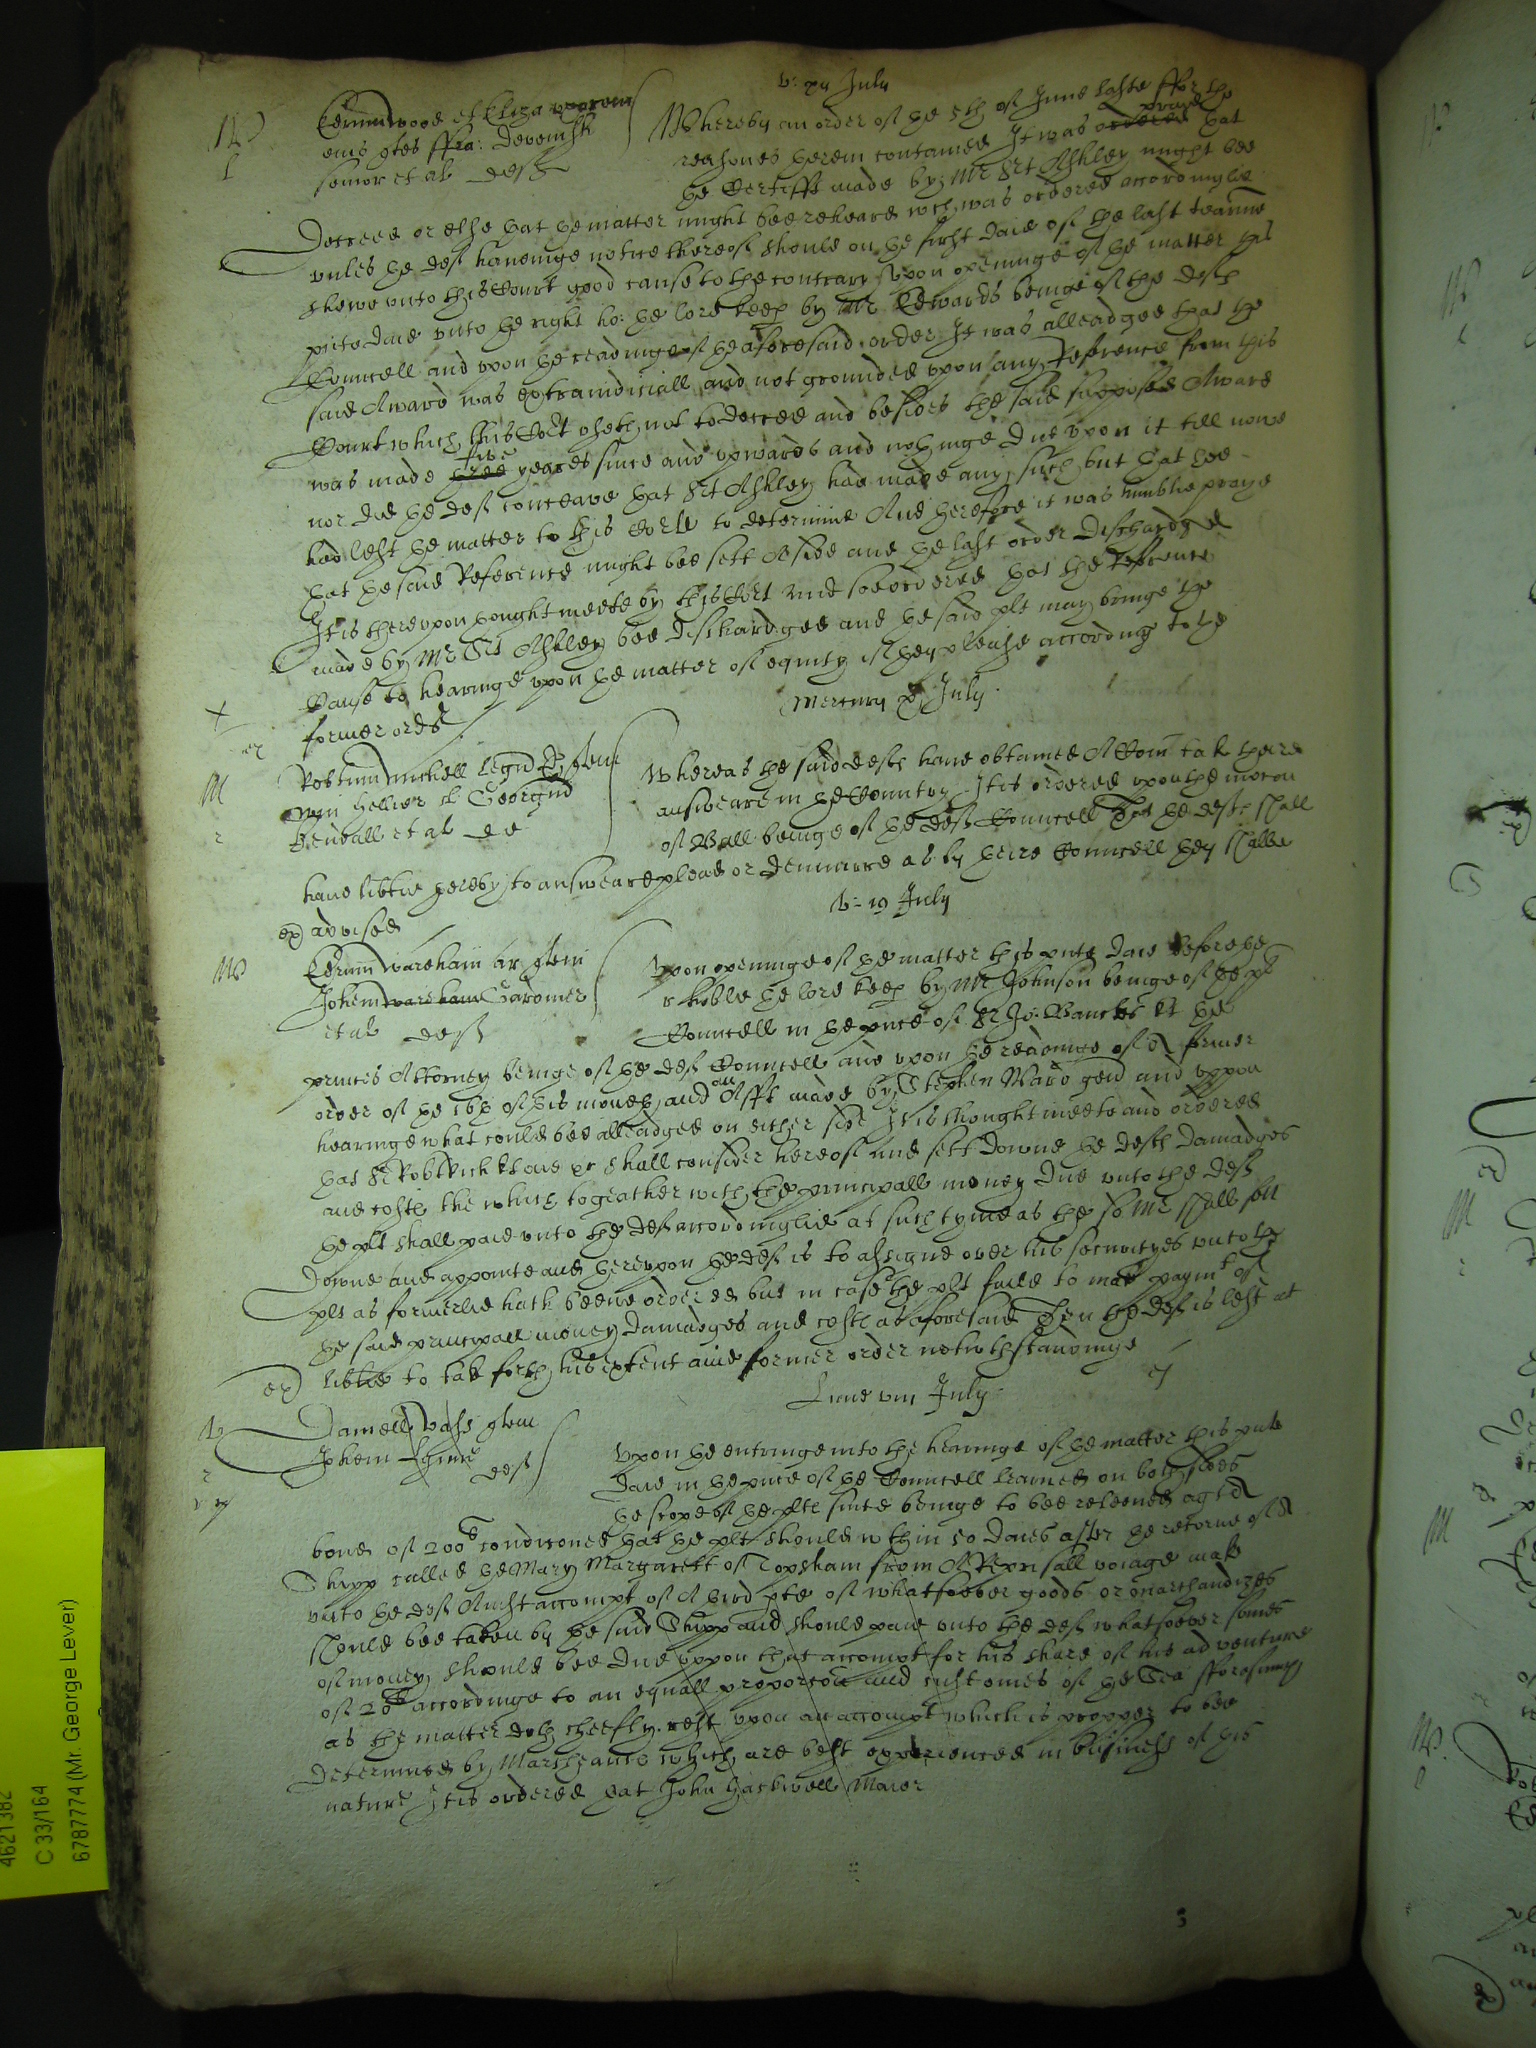 V: xii July
W
l
Edmund wood et Eliza uxorem
eius quer ffra: Devenish
senior et al deftes
Whereby an order of the 5th of June laste ffor the
reasones therein contained It was ordered prayed that
the Certifft made by Mr Srt Ashley might bee
Decreed or else that the matter might bee reheard wch was ordered accordinglie
unles the deft haveinge notice thereof should on the first daie of the last tearme
shewe unto this Court good cause to the contrary Upon openinge of the matter this
pnte daie unto the right ho: the lord keep by Mr Edwards beinge of the deftes
Councell and upon the readinge of the aforesaid order It was alleadged that the
said Award was extraiudiciall and not grounded upon any Reference from this
Court which this Cort useth not to decree and besides the said supposed Award
was made three five yeares since and upwards and nothinge due upon it till nowe
nor did the deft conceave that Srt Ashley had made any such but that hee
had left the matter to this Corte to determine And therefore it was humblie prayed
that the said Reference might bee sett Aside and the last order dischardged
It is thereupon thought meete by this Cort and soe ordered that the reference
made by Mr Srt Ashley bee dischardged and the said plt may bringe the
Cause to hearinge upon the matter of equity if they please accordinge to the
former order
Mercurii July
M
Robtum Michell
Willm Hellier et Georgiu
Kendall et al de
Whereas the said deftes have obtained A Comn to take theire
answeare in the Countrey It is ordered upon the motion
of Wall beinge of the deftes Councell That the deftes shall
have libtie hereby to answeare plead or demurre as by theire Councell they shalbe
ex advised
V: 19 July
W
Edmu Wareham ar quer
Johem Wareham Gardiner
et al deft
Upon openinge of the matter this pnte daie before the
r hoble the lord keep by Mr Johnson beinge of the plt
Councell in the pnce of Sr Jo: Banckes kt the
princes Attorney beinge of the def Councell and upon the readinge of a former
order of the 16th of this moneth and an Afft made by Stephen Ward gent and uppon
hearinge what could bee alleadged on either side It is thought meete and ordered
that Sr Robt Rich kt one &c shall consider hereof and sett downe the deftes damadges
and costes the which togeather with the principall money due unto the deft
the plt shall paie unto the deft accordinglie at such tyme as the sd Mr shall sett
downe and appointe and thereupon the deft is to assigne over his securityes unto the
plt as formerlie hath beene ordered but in case the plt faile to make paymt of
the said principall money damadges and costes as aforesaid Then the deft is left at
ex libtie to take forth his extent anie former order notwthstandinge
Lune viii July
Daniell quer
Johem
deft
Upon the entringe into the hearinge of the matter this pnte
daie in the pnce of the Councell learned on both sides
the scope of the pltes suite beinge to bee releeved agt a
bond of 200l condiconed that the plt should wthin 50 daies after the retorne of A
Shipp called the Mary Margarett of Topsham from A Reprisall voiage make
unto the deft A iust accompt of A third pte of whatsoever goods or marchandizes
should bee taken by the said Shipp and should paie unto the deft whatsoever somes
of money should bee due uppon that accompt for his share of his adventure
of accordinge to an equall proporcon and customes of the Sea fforasmuch
as the matter doth cheefly rest upon an accompt which is propper to bee
determined by Marchants which are best experienced in busines of this
nature It is ordered that John Hackwell Maior
4621382
C 33/164
6787774 (Mr. George Lever)